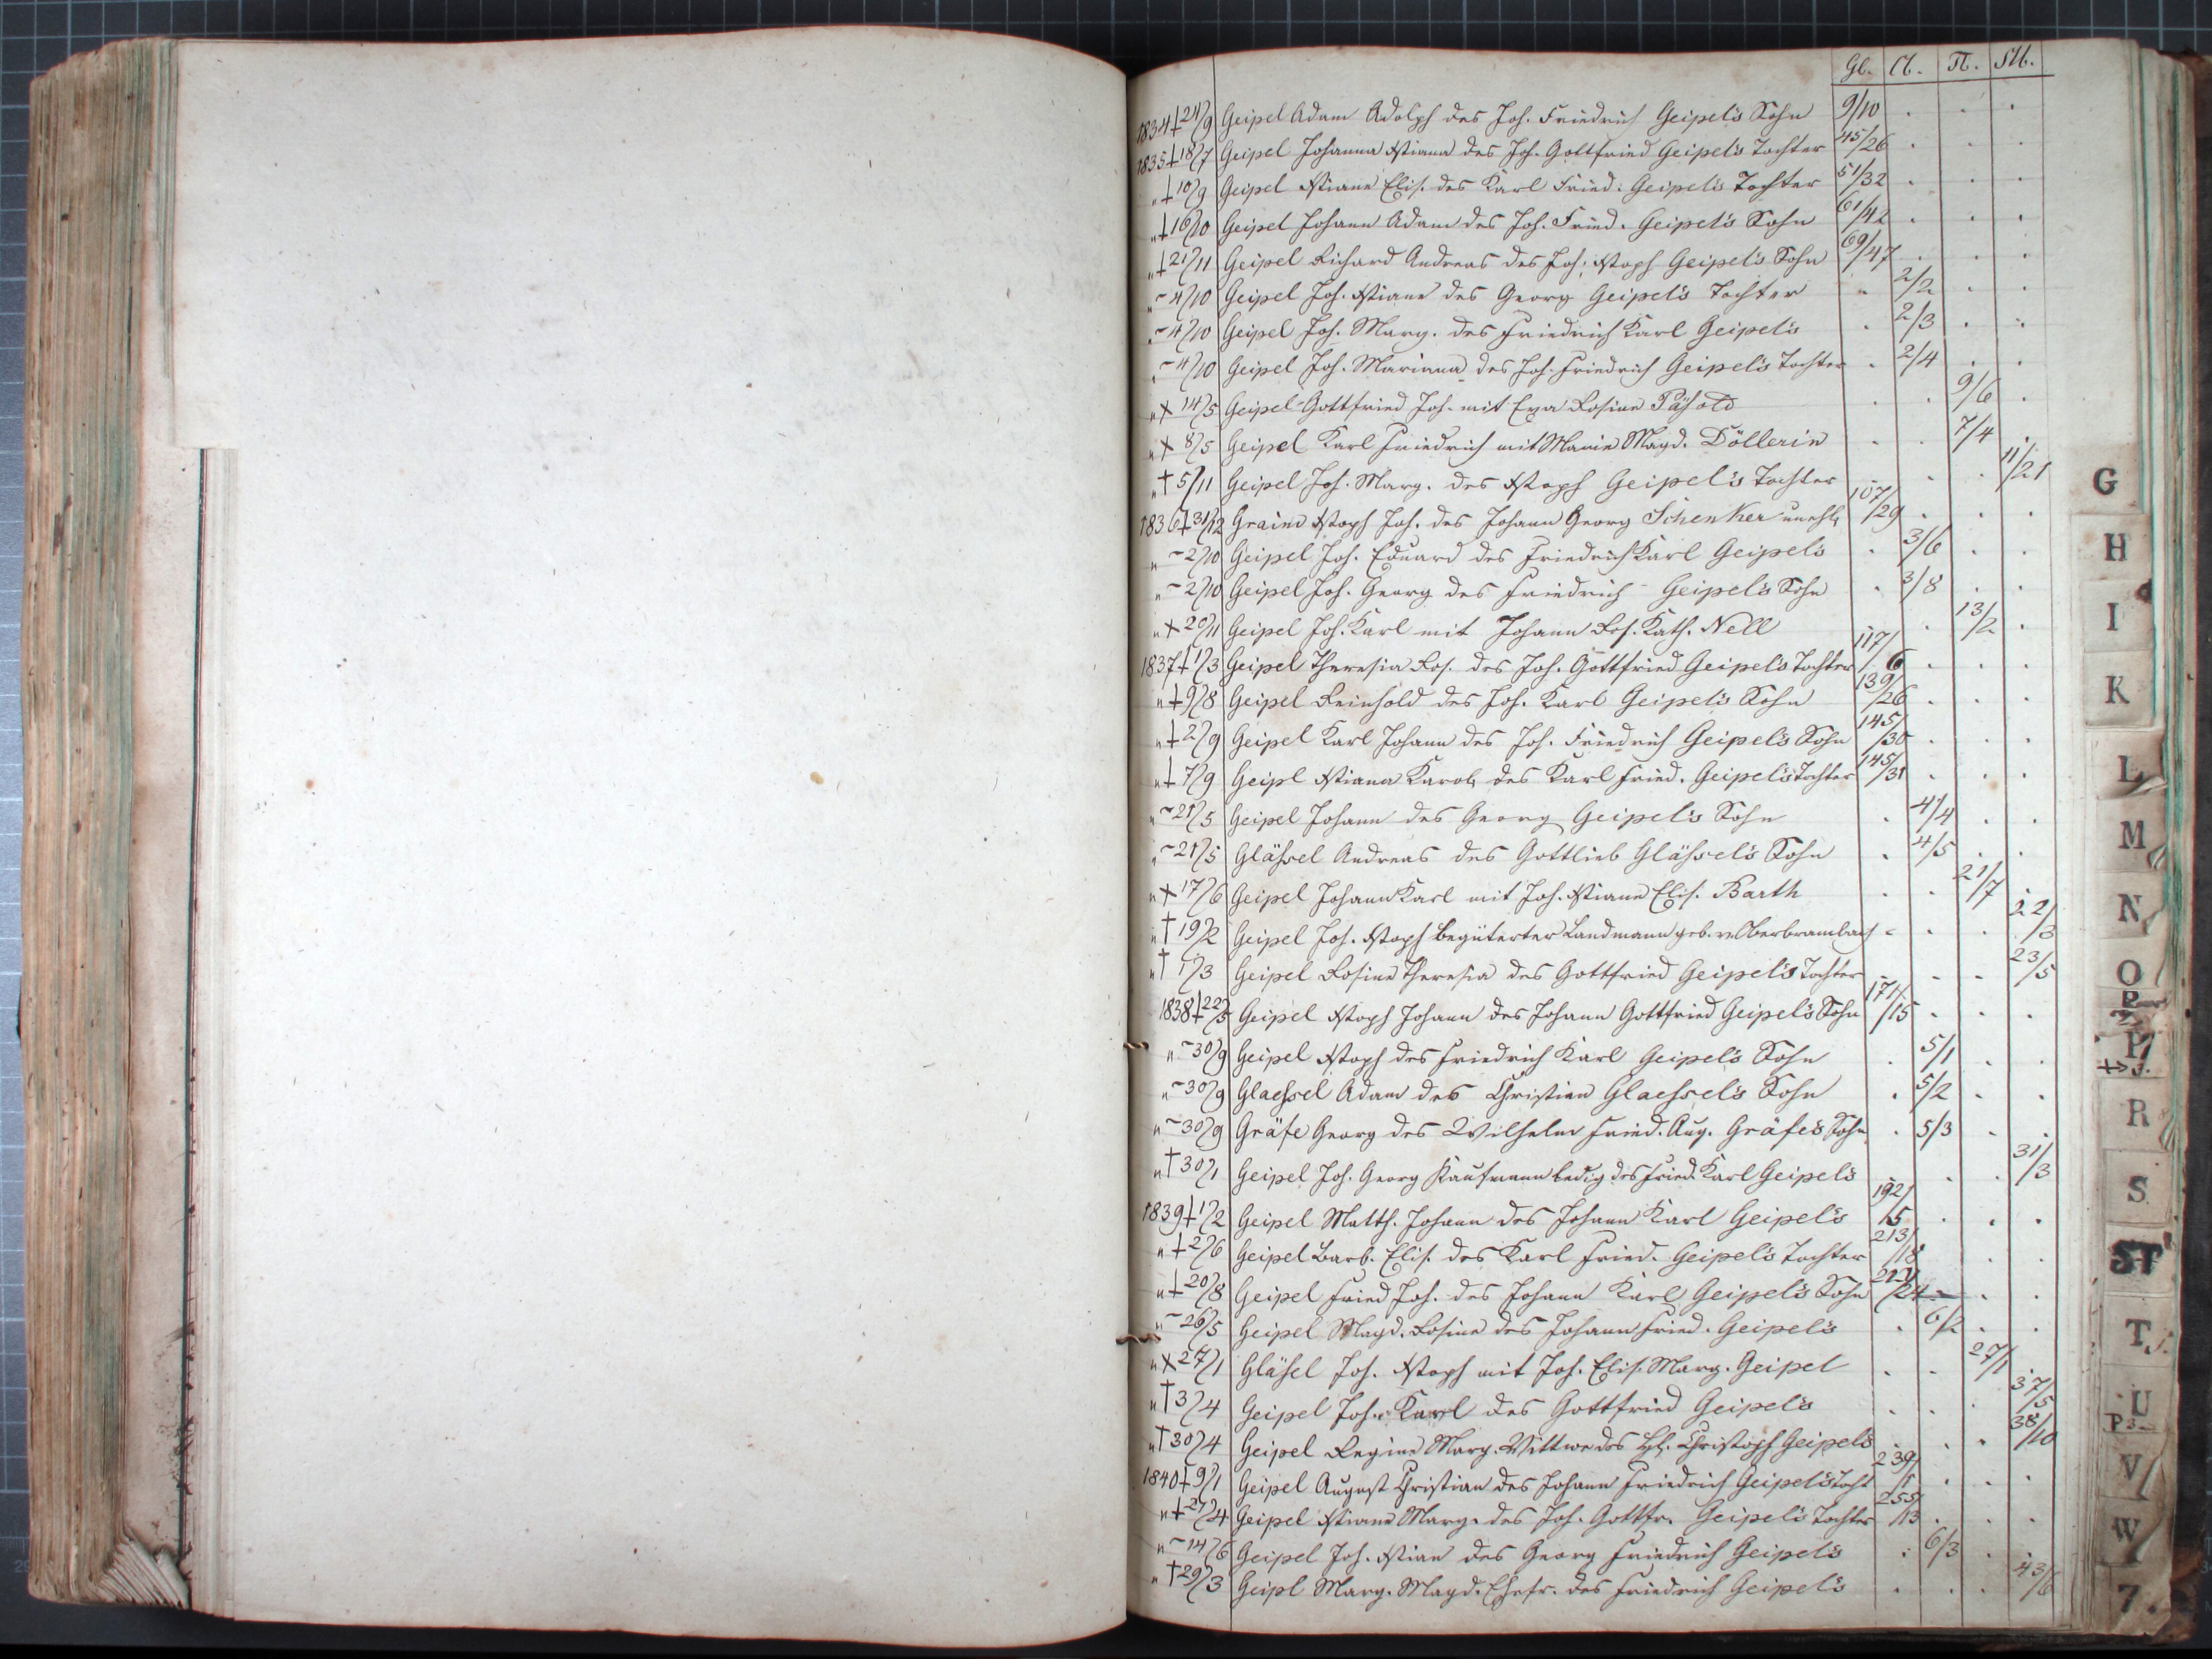 Gb. Cf. Tr. Stb.
1834 ⸸ 21/9 Geipel Adam Adolph des Joh. Friedrich Geipel's Sohn 9/10 . . .
1835 ⸸ 18/7 Geipel Johanna Xtiana des Joh. Gottfried Geipel's Tochter 45/26 . . .
" ⸸ 10/9 Geipel Xtiane Elis. des Karl Fried. Geipel's Tochter 51/32 . . .
" ⸸ 16/10 Geipel Johann Adam des Joh. Fried. Geipel's Sohn 61/42 . . .
" ⸸ 21/11 Geipel Richard Andreas des Joh. Xtoph Geipel's Sohn 69/47 . . .
" ~ 4/10 Geipel Joh. Xtiane des Georg Geipel's Tochter . 2/2 . .
" ~ 4/10 Geipel Joh. Marg. des Friedrich Karl Geipel's . 2/3 . .
" ~ 4/10 Geipel Joh. Mariana des Joh. Friedrich Geipel's Tochter . 2/4 . .
" X 14/5 Geipel Gottfried Joh. mit Eva Rosine Päsold . . 9/6 .
" X 8/5 Geipel Karl Friedrich mit Marie Magd. Döllerin . . 7/4 .
" † 5/11 Geipel Joh. Marg. des Xtoph Geipel's Tochter . . . 11/21
1836 ⸸ 31/12 Graim Xtoph Joh. des Johann Georg Schenker unehl. 107/29 . . .
" ~ 2/10 Geipel Joh. Eduard des Friedrich Karl Geipels . 3/6 . .
" ~ 2/10 Geipel Joh. Georg des Friedrich Geipel's Sohn . 3/8 . .
" X 20/11 Geipel Joh. Karl mit Johann Ros. Kath. Nell . . 13/2 .
1837 ⸸ 1/3 Geipel Theresia Ros. des Joh. Gottfried Geipels Tochter 117/6 . . .
" ⸸ 9/8 Geipel Reinhold des Joh. Karl Geipel's Sohn 139/26 . . .
" ⸸ 2/9 Geipel Karl Johann des Joh. Friedrich Geipel's Sohn 145/30 . . .
" ⸸ 7/9 Geipl Xtiana Karol. des Karl Fried. Geipel's Tochter 145/31 . . .
" ~ 21/5 Geipel Johann des Georg Geipel's Sohn . 4/4 . .
" ~ 21/5 Gläßel Andreas des Gottlieb Gläßel's Sohn . 4/5 . .
" X 17/6 Geipel Johann Karl mit Joh. Xtiane Elis. Barth . . 21/7 .
" † 19/2 Geipel Joh. Xtoph begüterter Landmann geb. v. Oberbrambach . . . 22/3
" † 1/3 Geipel Rosine Theresia des Gottfried Geipel's Tochter . . . 23/5
1838 ⸸ 22/5 Geipel Xtoph Johann des Johann Gottfried Geipel's Sohn 171/15 . . .
" ~ 30/9 Geipel Xtoph des Friedrich Karl Geipel's Sohn . 5/1 . .
" ~ 30/9 Glaeßel Adam des Christian Glaeßel's Sohn . 5/2 . .
" ~ 30/9 Gräfe Georg des Wilhelm Fried. Aug. Gräfe's Sohn . 5/3 . .
" † 30/1 Geipel Joh. Georg Kaufmann ledig des Fried. Karl Geipel's . . . 31/3
1839 ⸸ 1/2 Geipel Matth. Johann des Johann Karl Geipel's 192/5 . . .
" ⸸ 2/6 Geipel Barb. Elis. des Karl Fried. Geipel's Tochter 213/18 . . .
" ⸸ 20/8 Geipel Fried Joh. des Johann Karl Geipel's Sohn /24 . . .
" ~ 26/5 Geipel Magd. Rosine des Johann Fried. Geipel's . 6/2 . .
" X 27/1 Gläsel Joh. Xtoph mit Joh. Elis. Marg. Geipel . . 27/1 .
" † 3/4 Geipel Joh. Karl des Gottfried Geipel's . . . 37/5
" † 30/4 Geipel Regine Marg. Wittwe des Christoph Geipel's . . . 38/10
1840 ⸸ 9/1 Geipel August Christian des Johann Friedrich Geipel's Tocht 239/1 . . .
" ⸸ 21/4 Geipel Xtiane Marg. des Joh. Gottfr. Geipel's Tochter 255/13 . . .
" ~ 14/6 Geipel Joh. Xtian des Georg Friedrich Geipel's . 6/3 . .
" † 29/3 Geipl Marg. Magd. Ehefr. des Friedrich Geipel's . . . 43/6
G
H
I
K
L
M
N
O
P
R
S
ST
T
U
V
W